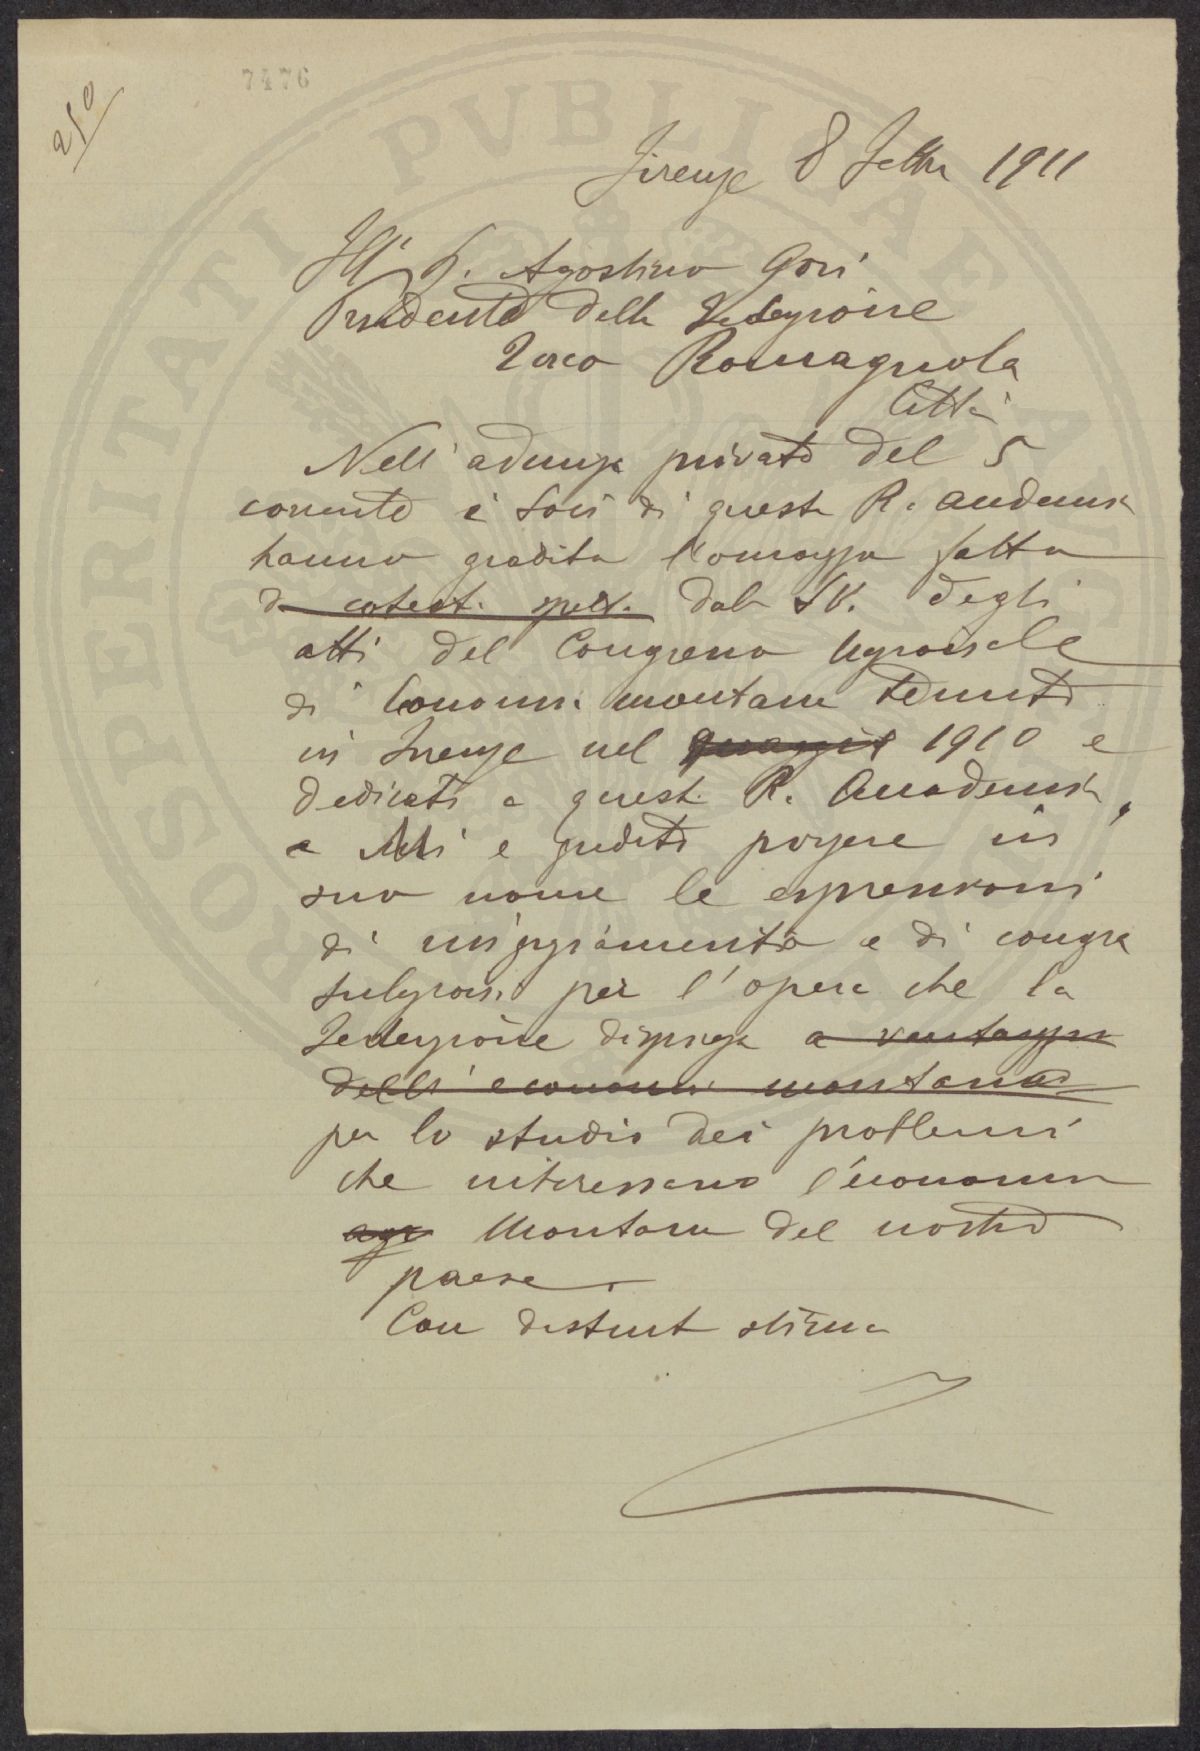 7476
250
Firenze 8 Febbr 1911
Ill. S. Agostino Gori
Presidente della Federazione
Tosco Romagnola
Città
Nell'adunza privata del 5
corrente i Soci di questa R. Accademia
hanno gradito l'omaggio fatto
da cotest. spett. dalla SV. degli
atti del Congresso Nazionale
di Economia montana tenuto
in Firenze nel maggio 1910 e
dedicati a questa R. Accademia,
e Mi è gradito porgere in
suo nome le espressioni
di ringraziamento e di congra
tulazioni per l'opera che la
Federazione dispiega a vantaggio
dell'economia montana
per lo studio dei problemi
che interessano l'economia
agr montana del nostro
paese.
Con distinta stima
PROSPERITATI PVBLICAE AVGENDAE